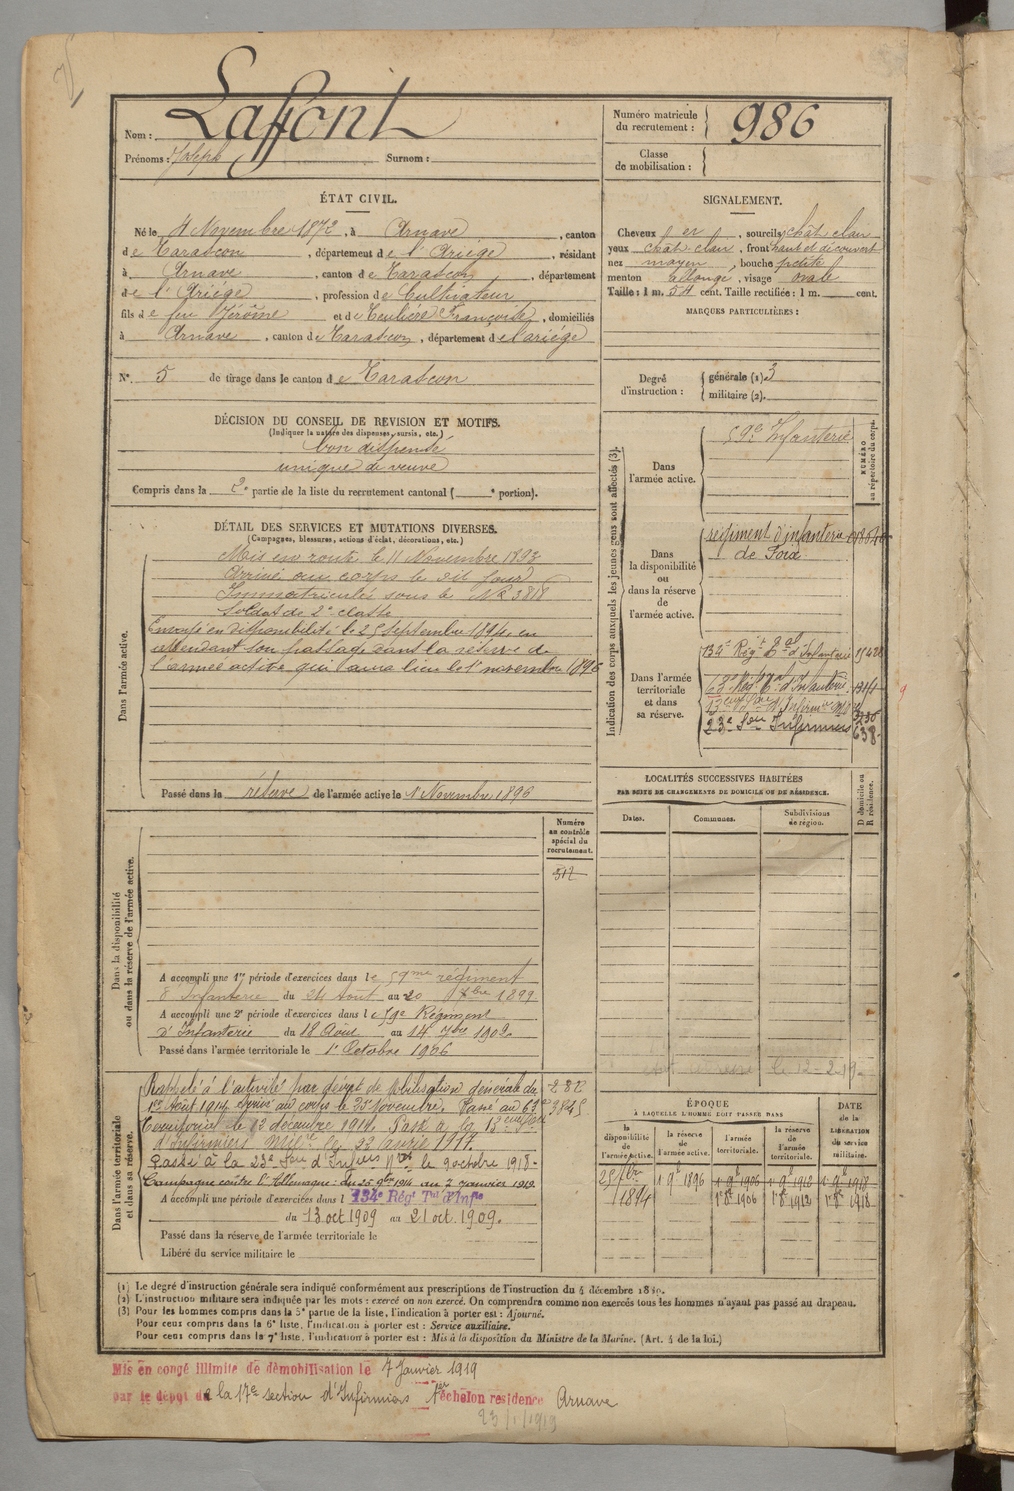 Laffont
Nom :
Prénoms : Joseph Surnom :
Numéro matricule
du recrutement : 986
Classe
de mobilisation :
ÉTAT CIVIL.
Né le 4 Novembre 1872, à Arnave, canton
de Tarascon, département de l'Ariège, résidant
à Arnave, canton de Tarascon, département
de l'Ariège, profession de Cultivateur
fils de feu Jérôme et de Teulière Françoise, domiciliés
à Arnave, canton de Tarascon, département de l'ariége
N° 5 de tirage dans le canton de Tarascon
SIGNALEMENT.
Cheveux et, sourcils chât clair
yeux chât. clair, front haut et découvert
nez moyen, bouche petite
menton allongé, visage ovale
Taille : 1 m. 54 cent. Taille rectifiée : 1 m. cent.
MARQUES PARTICULIÈRES :
Degré
d'instruction :
générale (1) 3
militaire (2).
DÉCISION DU CONSEIL DE REVISION ET MOTIFS.
(Indiquer la nature des dispenses, sursis, etc.)
bon dispensé
unique de veuve
Compris dans la 2e partie de la liste du recrutement cantonal ( e portion).
DÉTAIL DES SERVICES ET MUTATIONS DIVERSES.
(Campagnes, blessures, actions d'éclat, décorations, etc.)
Dans l'armée active.
Mis en route le 11 Novembre 1893
Arrivé au corps le dit jour
Immatriculé sous le No 3818
Soldat de 2e classe
Envoyé en disponibilité le 25 Septembre 1894 en
attendant son passage dans la réserve de
l'armée active qui aura lieu le 1er novembre 1896
Passé dans la réserve de l'armée active le 1 Novembre 1896
Indication des corps auxquels les jeunes gens sont affectés (3).
Dans
l'armée active.
59e Infanterie
NUMÉRO
au répertoire du corps.
Dans
la disponibilité
ou
dans la réserve
de
l'armée active.
régiment d'infanterie
de Foix
Dans l'armée
territoriale
et dans
sa réserve.
134e Régt tal d'Infanterie
63e Régt tal d'Infanterie 1314
23e Son Infirmiers 638
LOCALITÉS SUCCESSIVES HABITÉES
PAR SUITE DE CHANGEMENTS DE DOMICILE OU DE RÉSIDENCE.
Dates. Communes. Subdivisions
de région.
D domicile ou
R résidence.
Dans la disponibilité
ou dans la réserve de l'armée active.
Numéro
au contrôle
spécial du
recrutement.
512
A accompli une 1re période d'exercices dans le 59me régiment
d'Infanterie du 24 Août au 20 7bre 1899
A accompli une 2e période d'exercices dans le 59e Régiment
d'Infanterie du 18 Août au 14 7bre 1902
Passé dans l'armée territoriale le 1er Octobre 1906
Dans l'armée territoriale
et dans sa réserve.
Rappelé à l'activité par décret de Mobilisation Générale du 282
1er Août 1914. Arrivé au corps le 25 Novembre. Passé au 63e 3845
Territorial le 12 décembre 1914. Passé à la 13eme Son
d'Infirmiers Milres le 22 Janvier 1917.
Passé à la 23e Son d'Infiers Mres le 9 octobre 1918.
Campagne contre l'Allemagne : du 25 9bre 1914 au 7 janvier 1919
A accompli une période d'exercices dans l 134e Régt Tal d'Infie
du 13 oct 1909 au 21 oct. 1909.
Passé dans la réserve de l'armée territoriale le
Libéré du service militaire le
ÉPOQUE
À LAQUELLE L'HOMME DOIT PASSER DANS
DATE
de la
LIBÉRATION
du service
militaire.
la
disponibilité
de
l'armée active.
la réserve
de
l'armée active.
l'armée
territoriale.
la réserve
de
l'armée
territoriale.
25 7bre 1 9e 1896 1 9e 1906 1 9e 1912 1 9e 1918
1894 1er 8e 1906 1er 8e 1912 1er 8e 1918
(1) Le degré d'instruction générale sera indiqué conformément aux prescriptions de l'instruction du 4 décembre 1889.
(2) L'instruction militaire sera indiquée par les mots : exercé ou non exercé. On comprendra comme non exercés tous les hommes n'ayant pas passé au drapeau.
(3) Pour les hommes compris dans la 5e partie de la liste, l'indication à porter est : Ajourné.
Pour ceux compris dans la 6e liste, l'indication à porter est : Service auxiliaire.
Pour ceux compris dans la 7e liste, l'indication à porter est : Mis à la disposition du Ministre de la Marine. (Art. 4 de la loi.)
Mis en congé illimité de démobilisation le 7 Janvier 1919
par le dépôt de la 17e section d'Infirmiers 1er échelon résidence Arnave
23/1/1919